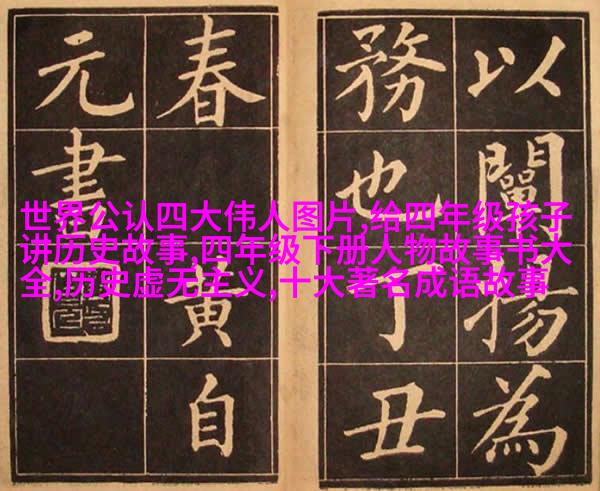 以闡揚為
務也丁丑
春黄自
元書
世界公认四大伟人图片,给四年级孩子
讲历史故事,四年级下册人物故事书大
全,历史虚无主义,十大著名成语故事